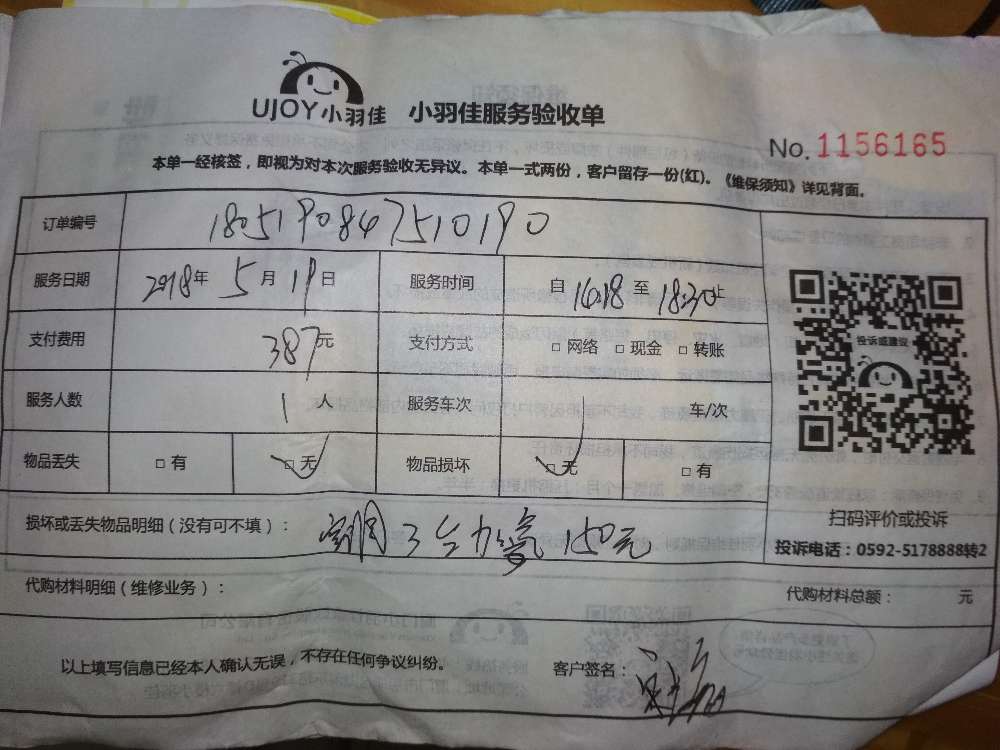 UJOY小羽佳 小羽佳服务验收单
No. 1156165
本单一经核签，即视为对本次服务验收无异议。本单一式两份，客户留存一份(红)。《维保须知》详见背面。
订单编号 1805190847510190
服务日期 2018年 5月 19日 服务时间 自 16:18 至 18:30止
支付费用 387元 支付方式 □ 网络 □ 现金 □ 转账
投诉或建议
服务人数 1 人 服务车次 车/次
物品丢失 □ 有 □ 无 物品损坏 □ 无 □ 有
扫码评价或投诉
损坏或丢失物品明细（没有可不填）： 空调3台加氟 150元
投诉电话：0592-5178888转2
代购材料明细（维修业务）： 代购材料总额： 元
以上填写信息已经本人确认无误，不存在任何争议纠纷。 客户签名：